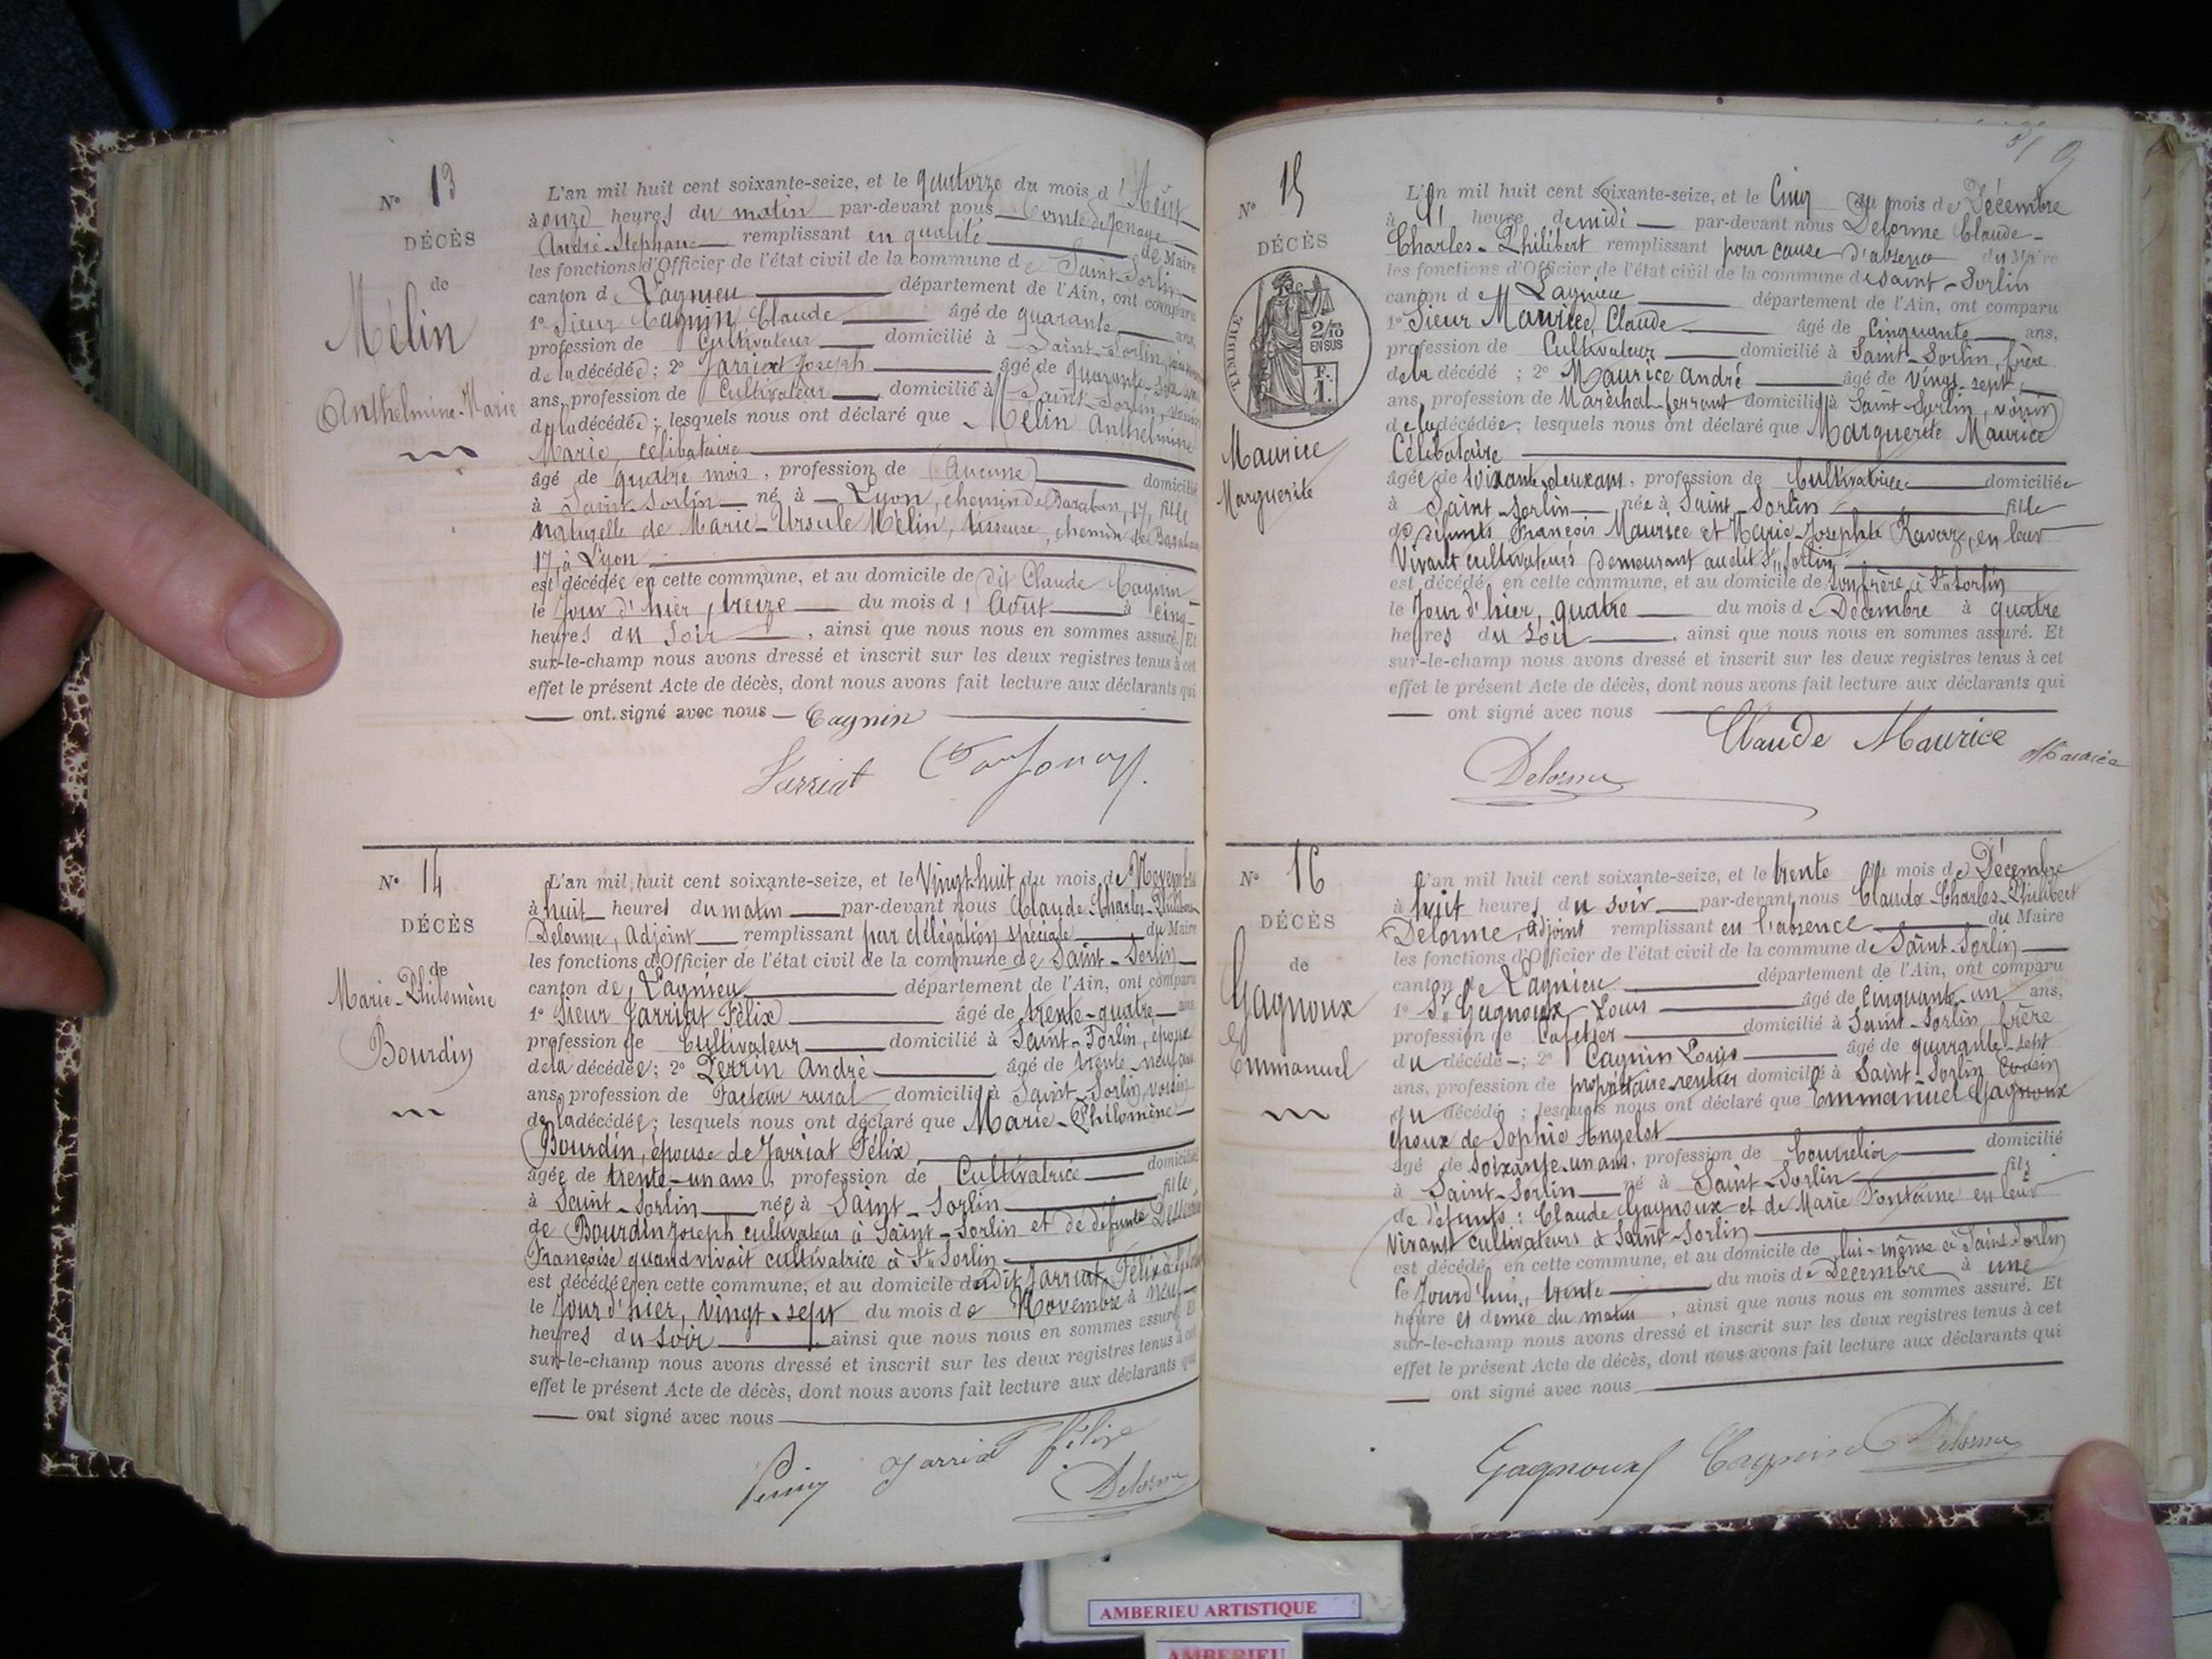 N° 13
DÉCÈS
de
Mélin
Anthelmine-Marie
L'an mil huit cent soixante-seize, et le quatorze du mois d'Août
à onze heures du matin par-devant nous Comte de Jonage
André-Stéphane remplissant en qualité de Maire
les fonctions d'Officier de l'état civil de la commune de Saint-Sorlin
canton de Lagnieu département de l'Ain, ont comparu
1° Sieur Cagnin Claude âgé de quarante ans,
profession de Cultivateur domicilié à Saint-Sorlin,
de la décédée; 2° Jarriat Joseph âgé de quarante
ans, profession de Cultivateur domicilié à Saint-Sorlin, voisin
de la décédée; lesquels nous ont déclaré que Mélin Anthelmine
Marie, célibataire
âgé de quatre mois, profession de (Aucune) domicilié
à Saint Sorlin né à Lyon, chemin de Baraban, 17, fille
naturelle de Marie-Ursule Mélin, tisseuse, chemin de Baraban
17, à Lyon
est décédée en cette commune, et au domicile de dit Claude Cagnin
le jour d'hier, treize du mois d'Août à cinq
heures du soir, ainsi que nous nous en sommes assuré. Et
sur-le-champ nous avons dressé et inscrit sur les deux registres tenus à cet
effet le présent Acte de décès, dont nous avons fait lecture aux déclarants qui
ont signé avec nous Cagnin
Jarriat
N° 14
DÉCÈS
de
Marie-Philomène
Bourdin
L'an mil huit cent soixante-seize, et le Vingt-huit du mois de Novembre
à huit heures du matin par-devant nous Claude-Charles-Philibert
Delorme, Adjoint remplissant par délégation spéciale du Maire
les fonctions d'Officier de l'état civil de la commune de Saint-Sorlin
canton de Lagnieu département de l'Ain, ont comparu
1° Sieur Jarriat Félix âgé de trente-quatre ans
profession de Cultivateur domicilié à Saint-Sorlin, époux
de la décédée; 2° Perrin André âgé de trente-neuf ans
ans, profession de Facteur rural domicilié à Saint-Sorlin, voisin
de la décédée; lesquels nous ont déclaré que Marie-Philomène
Bourdin, épouse de Jarriat Félix
âgée de trente-un ans, profession de Cultivatrice domicilié
à Saint-Sorlin née à Saint-Sorlin fille
de Bourdin Joseph cultivateur à Saint-Sorlin et de défunte
Françoise quand vivait cultivatrice à St Sorlin
est décédée en cette commune, et au domicile dudit Jarriat Félix
le Jour d'hier, vingt-sept du mois de Novembre à neuf
heures du soir ainsi que nous nous en sommes assuré. Et
sur-le-champ nous avons dressé et inscrit sur les deux registres tenus à cet
effet le présent Acte de décès, dont nous avons fait lecture aux déclarants qui
ont signé avec nous
Perrin Jarriat Félix
Delorme
N° 15
DÉCÈS
TIMBRE
2/10
EN SUS
F.
1.
Maurice
Marguerite
L'an mil huit cent soixante-seize, et le Cinq du mois de Décembre
à heure de midi par-devant nous Delorme Claude-
Charles-Philibert remplissant pour cause d'absence du Maire
les fonctions d'Officier de l'état civil de la commune de Saint-Sorlin
canton de Lagnieu département de l'Ain, ont comparu
1° Sieur Maurice, Claude âgé de Cinquante ans,
profession de Cultivateur domicilié à Saint-Sorlin, frère
de la décédé; 2° Maurice André âgé de Vingt-sept
ans, profession de Maréchal-ferrant domicilié à Saint-Sorlin, voisin
de la décédée; lesquels nous ont déclaré que Marguerite Maurice
Célibataire
âgée de soixante-deux ans, profession de Cultivatrice domiciliée
à Saint-Sorlin née à Saint-Sorlin fille
de défunts François Maurice et Marie-Josephte Ravaz, en leur
Vivant cultivateurs demeurant audit St Sorlin
est décédé en cette commune, et au domicile de son frère à St Sorlin
le Jour d'hier, quatre du mois de Décembre à quatre
heures du soir, ainsi que nous nous en sommes assuré. Et
sur-le-champ nous avons dressé et inscrit sur les deux registres tenus à cet
effet le présent Acte de décès, dont nous avons fait lecture aux déclarants qui
ont signé avec nous
Claude Maurice
Maurice
Delorme
N° 16
DÉCÈS
de
Gagnoux
Emmanuel
L'an mil huit cent soixante-seize, et le trente du mois de Décembre
à huit heures du soir par-devant nous Claude-Charles-Philibert
Delorme, adjoint remplissant en l'absence du Maire
les fonctions d'Officier de l'état civil de la commune de Saint-Sorlin
canton de Lagnieu département de l'Ain, ont comparu
1° Sr Gagnoux Louis âgé de Cinquante-un ans,
profession de Cafetier domicilié à Saint-Sorlin, frère
du décédé; 2° Cagnin Louis âgé de quarante-sept
ans, profession de propriétaire-rentier domicilié à Saint Sorlin
du décédé; lesquels nous ont déclaré que Emmanuel Gagnoux
époux de Sophie Angelot
âgé de soixante-un ans, profession de Bourrelier domicilié
à Saint-Sorlin né à Saint-Sorlin fils
de défunts: Claude Gagnoux et de Marie Fontaine en leur
Vivant cultivateurs à Saint-Sorlin
est décédé en cette commune, et au domicile de lui-même à Saint Sorlin
le Jourd'hui, trente du mois de Décembre à une
heure et demie du matin, ainsi que nous nous en sommes assuré. Et
sur-le-champ nous avons dressé et inscrit sur les deux registres tenus à cet
effet le présent Acte de décès, dont nous avons fait lecture aux déclarants qui
ont signé avec nous
Gagnoux Cagnin Delorme
AMBERIEU ARTISTIQUE
AMBERIEU